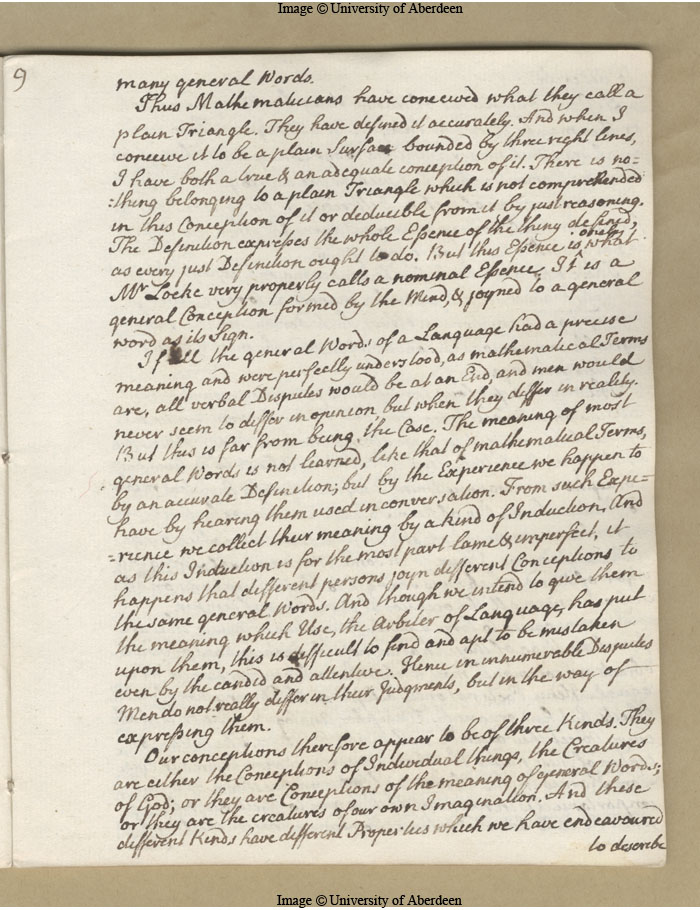 Image © University of Aberdeen
9
many general Words.
Thus Mathematicians have conceived what they call a
plain Triangle. They have defined it accurately. And when I
conceive it to be a plain Surface bounded by three right lines,
I have both a true & an adequate conception of it. There is no=
=thing belonging to a plain Triangle which is not comprehended
in this Conception of it or deducible from it by just reasoning.
The Definition expresses the whole Essence of the thing defined,
as every just Definition ought to do. But this Essence is onely what
Mr Locke very properly calls a nominal Essence, It is a
general Conception formed by the Mind, & joyned to a general
word as its Sign.
If all the general Words of a Language had a precise
meaning and were perfectly understood, as mathematical Terms
are, all verbal Disputes would be at an End, and men would
never seem to differ in opinion but when they differ in reality.
But this is far from being the Case. The meaning of most
general Words is not learned, like that of mathematical Terms,
by an accurate Definition; but by the Experience we happen to
have by hearing them used in conversation. From such Expe=
=rience we collect their meaning by a kind of Induction, And
as this Induction is for the most part lame & imperfect, it
happens that different persons joyn different Conceptions to
the same general Words. And though we intend to give them
the meaning which Use, the Arbiter of Language, has put
upon them, this is difficult to find and apt to be mistaken
even by the candid and attentive. Hence in innumerable Disputes
Men do not really differ in their Judgments, but in the way of
expressing them.
Our conceptions therefore appear to be of three Kinds. They
are either the Conceptions of Individual things, the Creatures
of God; or they are Conceptions of the meaning of general Words;
or they are the creatures of our own Imagination. And these
different Kinds have different Properties which we have endeavoured
to describe
Image © University of Aberdeen